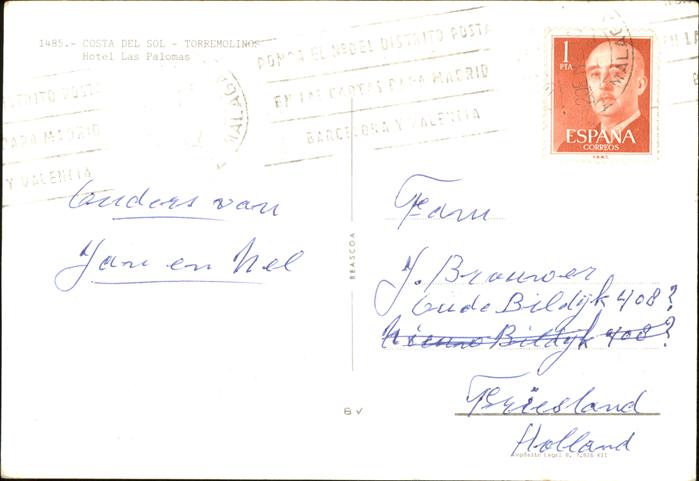 1485.- COSTA DEL SOL - TORREMOLINOS
Hotel Las Palomas
PONGA EL Nº DEL DISTRITO POSTAL
EN LAS CARTAS PARA MADRID
BARCELONA Y VALENCIA
DISTRITO POSTAL
PARA MADRID
Y VALENCIA
MALAGA
1
PTA
MALAGA
ESPAÑA
CORREOS
F.N.M.T.
EN LA
B
Ouders van
Jan en Nel
BEASCOA
Fam
J. Brouwer
Oude Bildijk 408?
Nieuwe Bildijk 408?
Friesland
Holland
Depósito Legal B. 7.026 XII
B V